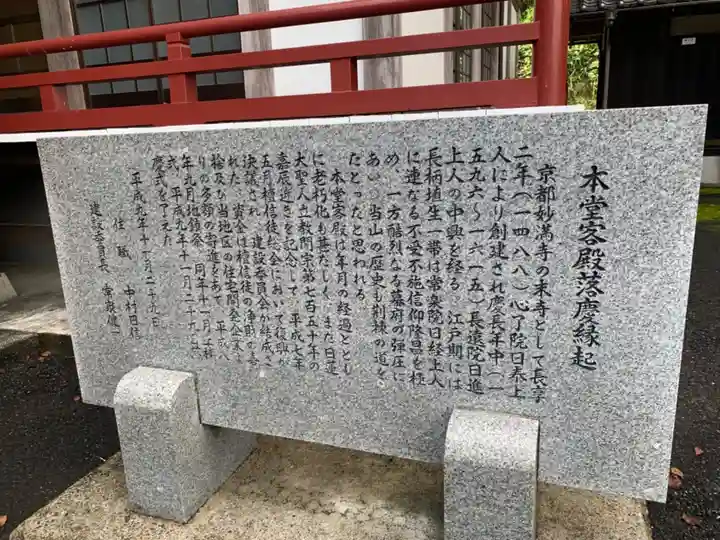 本堂客殿落慶縁起
京都妙満寺の末寺として長享
二年(一四八八)心了院日泰上
人により創建され慶長年中(一
五九六～一六一五)長遠院日進
上人の中興を経る 江戸期には
長柄埴生一帯は常楽院日経上人
に連なる不受不施信仰隆昌を極
め、一方酷烈なる幕府の弾圧に
あい、当山の歴史も荊棘の道を
たどったと思われる。
本堂客殿は年月の経過ととも
に老朽化も甚だしく、また日蓮
大聖人立教開宗第七百五十年の
嘉辰近きを記念して、平成七年
五月檀信徒総会において復興が
決議され、建設委員会が結成さ
れた 資金は檀信徒の浄財の喜
捨及び当地区の住宅開発企業よ
りの多額の寄進をあて、平成八
年九月地鎮祭、同年十一月上棟
式、平成九年十一月二十九日落
慶式を了えた
平成九年十一月二十九日
住職 中村日
建設委員長